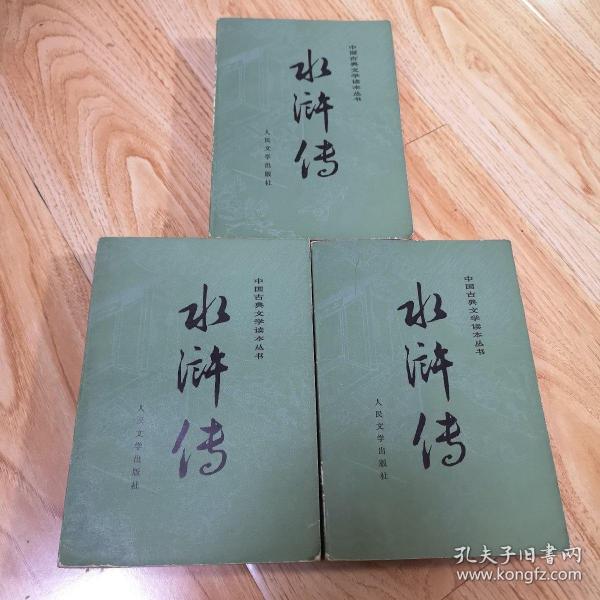 中国古典文学读本丛书
水浒传
人民文学出版社
中国古典文学读本丛书
水浒传
人民文学出版社
中国古典文学读本丛书
水浒传
人民文学出版社
孔夫子旧书网
www.kongfz.com